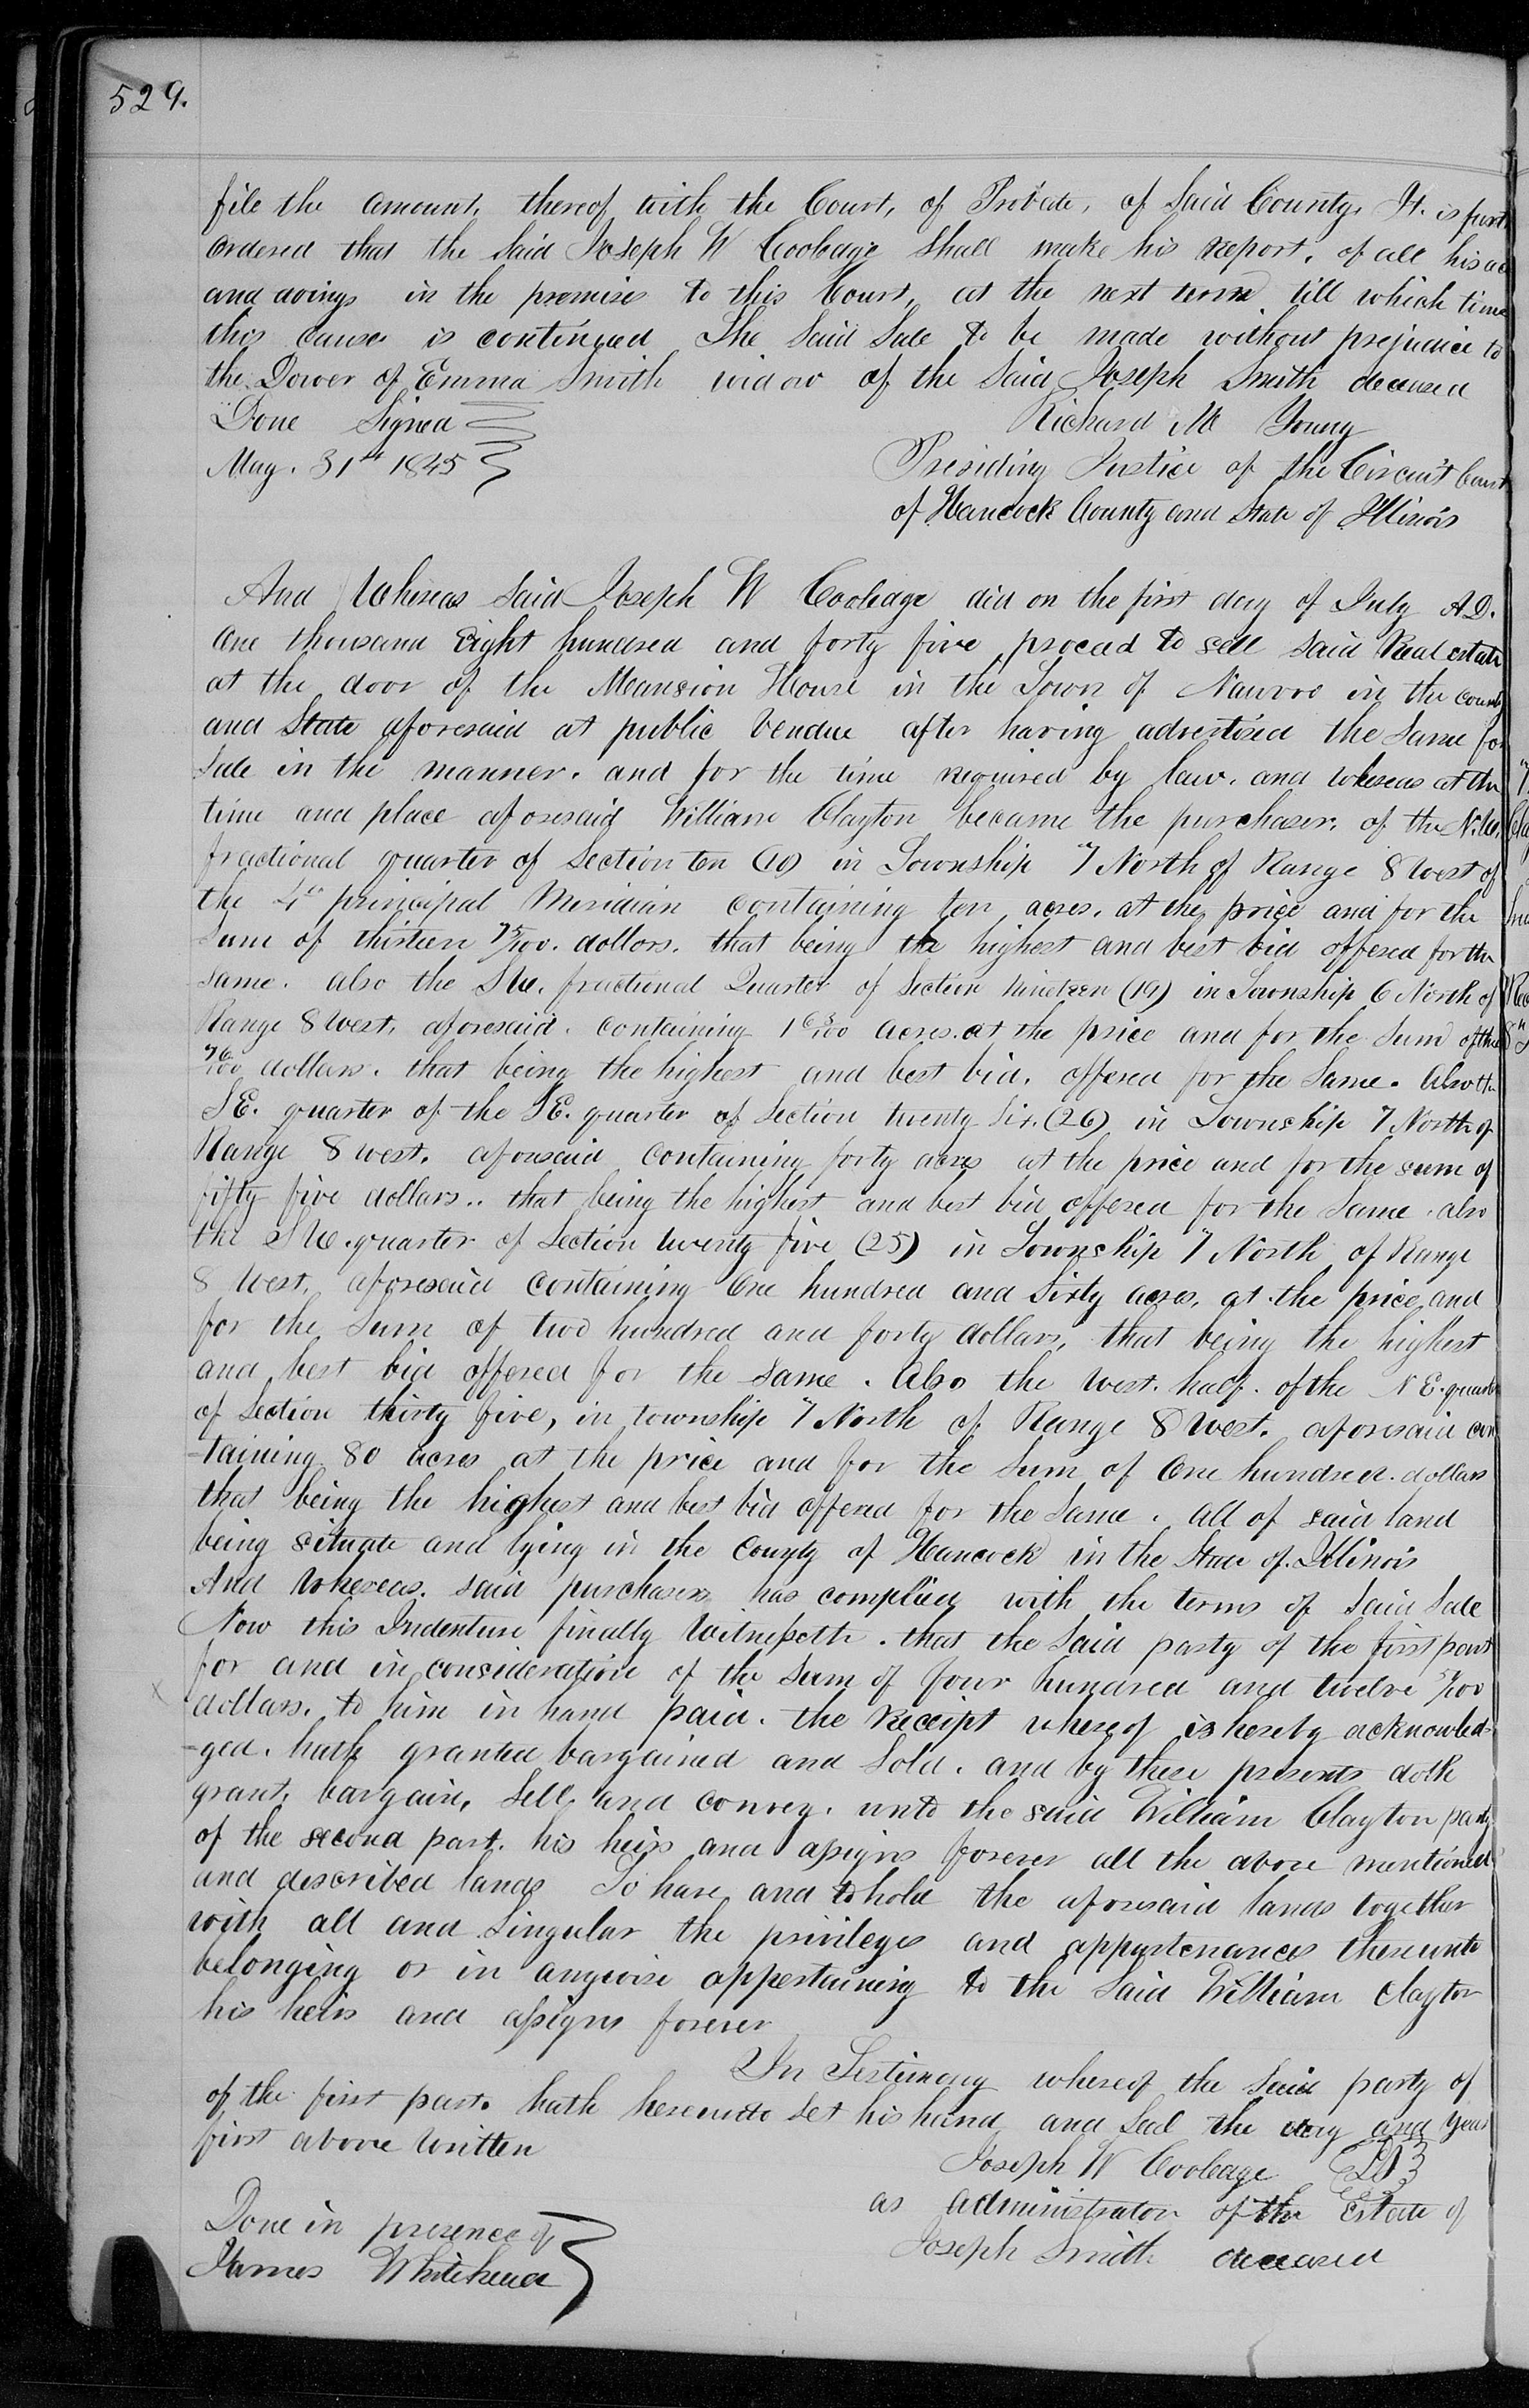 529.
file the amount, thereof with the Court, of Probate, of Said County, It. is furt
ordered that the Said Joseph W Coolage Shall make his report, of all his ac
and doings in the premises to this Court, at the next term till which time
this cause is continued The Said Sale to be made without prejudice to
the Dower of Emma Smith widow of the Said Joseph Smith deceased
Done Signed Richard M Young
May. 31th 1845 Presiding Justice of the Circuit Court
of Hancock County and State of Illinois
And Whereas Said Joseph W Coolage did on the first day of July A.D.
One thousand Eight hundred and forty five proceed to sell said Real estate
at the door of the Mansion House in the Town of Nauvoo in the county
and State aforesaid at public Vendue after having advertised the Same for
Sale in the manner. and for the time required by law. and whereas at the
time and place aforesaid William Clayton became the purchaser, of the N.W.
fractional quarter of Section ten (10) in Township 7 North of Range 8 West of
the 4th principal Meridian containing ten acres. at the price and for the
Sum of thirteen 75/100. dollars. that being the highest and best bid offered for the
same. also the S W. fractional Quarter of Section Nineteen (19) in Township 6 North of
Range 8 West, aforesaid. containing 1 63/100 acres. at the price and for the Sum of three
76/100 dollars. that being the highest and best bid. offered for the Same. Also the
S E. quarter of the S E. quarter of Section twenty Six. (26) in Township 7 North of
Range 8 west. aforesaid containing forty acres at the price and for the sum of
fifty five dollars.. that being the highest and best bid offered for the Same. also
the S W. quarter of Section twenty five (25) in Township 7 North of Range
8 West, aforesaid containing One hundred and Sixty acres, at the price and
for the Sum of two hundred and forty dollars, that being the highest
and best bid offered for the Same. Also the West. half. of the N E. quarter
of Section thirty five, in township 7 North of Range 8 West. aforesaid con
-taining 80 acres at the price and for the Sum of One hundred. dollars
that being the highest and best bid offered for the Same. all of said land
being situate and lying in the County of Hancock in the State of Illinois
And Whereas. said purchaser has complied with the terms of Said Sale
Now this Indenture finally Witnesseth. that the Said party of the first part
for and in consideration of the Sum of four hundred and twelve 51/100
dollars. to him in hand paid. the Receipt whereof is hereby acknowled-
-ged. hath granted bargained and Sold. and by these presents doth
grant, bargain, Sell and convey. unto the said William Clayton party
of the second part. his heirs and assigns forever all the above mentioned
and described lands To have and to hold the aforesaid lands together
with all and Singular the privileges and appurtenances thereunto
belonging or in anywise appertaining to the Said William Clayton
his heirs and assigns forever
In Testimony whereof the Said party of
of the first part. hath hereunto Set his hand and Seal the day and year
first above written
Joseph W Coolage
as administrator of the Estate of
Joseph Smith deceased
Done in presence of
James Whitehead